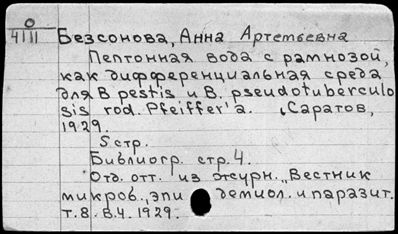 0
4111
Безсонова, Анна Артемьевна
Пептонная вода с рамнозой,
как дифференциальная среда
для B pestis и B. pseudotuberculo
sis rod. Pfeiffer'a. Саратов,
1929.
5 стр.
Библиогр. стр. 4.
Отд. отт. из журн. „Вестник
микроб., эпидемиол. и паразит.
т. 8. В. 4. 1929.